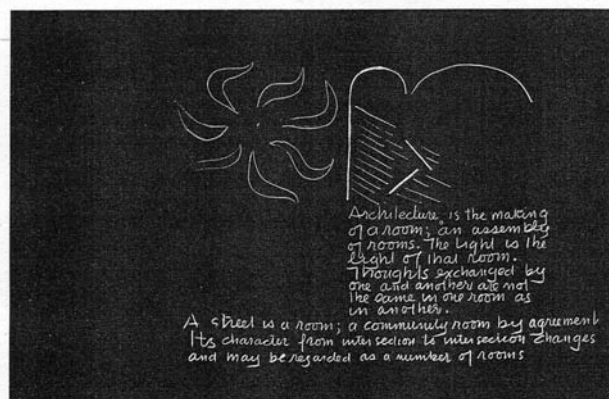 Architecture is the making
of a room; an assembly
of rooms. The light is the
light of that room.
Thoughts exchanged by
one and another are not
the same in one room as
in another.
A street is a room; a community room by agreement
Its character from intersection to intersection changes
and may be regarded as a number of rooms